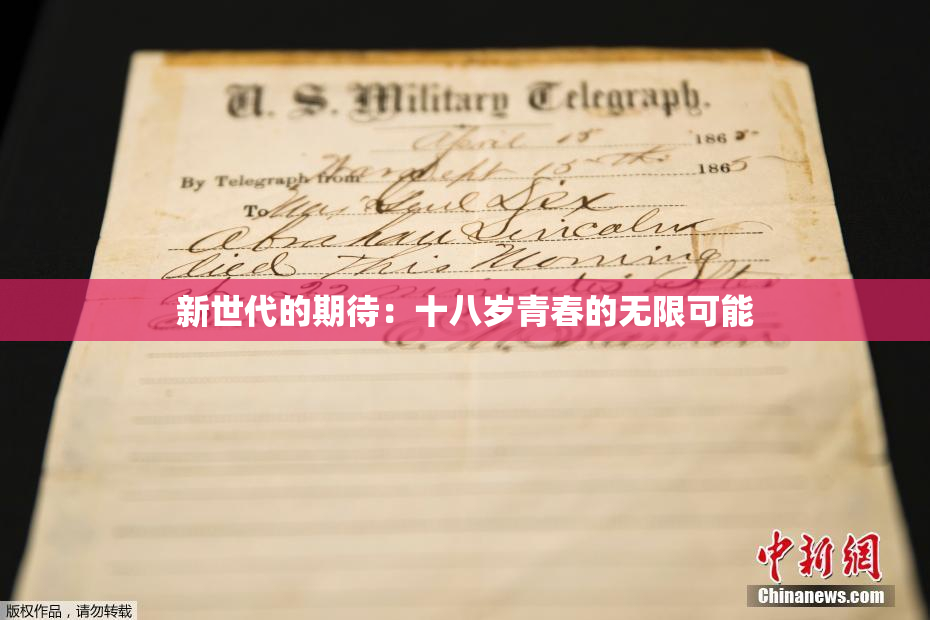 U. S. Military Telegraph.
April 15 1865
By Telegraph from War Dept 15th 1865
To Maj Genl Dix
Abraham Lincoln
died This Morning
at 22 minutes after
新世代的期待：十八岁青春的无限可能
E. M. Stanton
中新网
Chinanews.com
版权作品，请勿转载